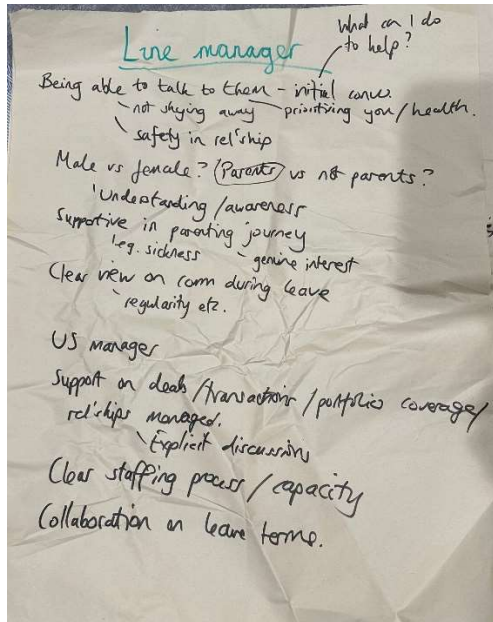 What can I do
to help?
Line manager
Being able to talk to them - initial convo.
not shying away - prioritising you/health.
safety in rel'ship
Male vs female? (Parents) vs not parents?
Understanding/awareness
Supportive in parenting journey
eg. sickness - genuine interest
Clear view on comm during leave
regularity etc.
US manager
Support on deals/transactions/portfolio coverage/
rel'ships managed.
Explicit discussions
Clear staffing process/capacity
Collaboration on leave terms.